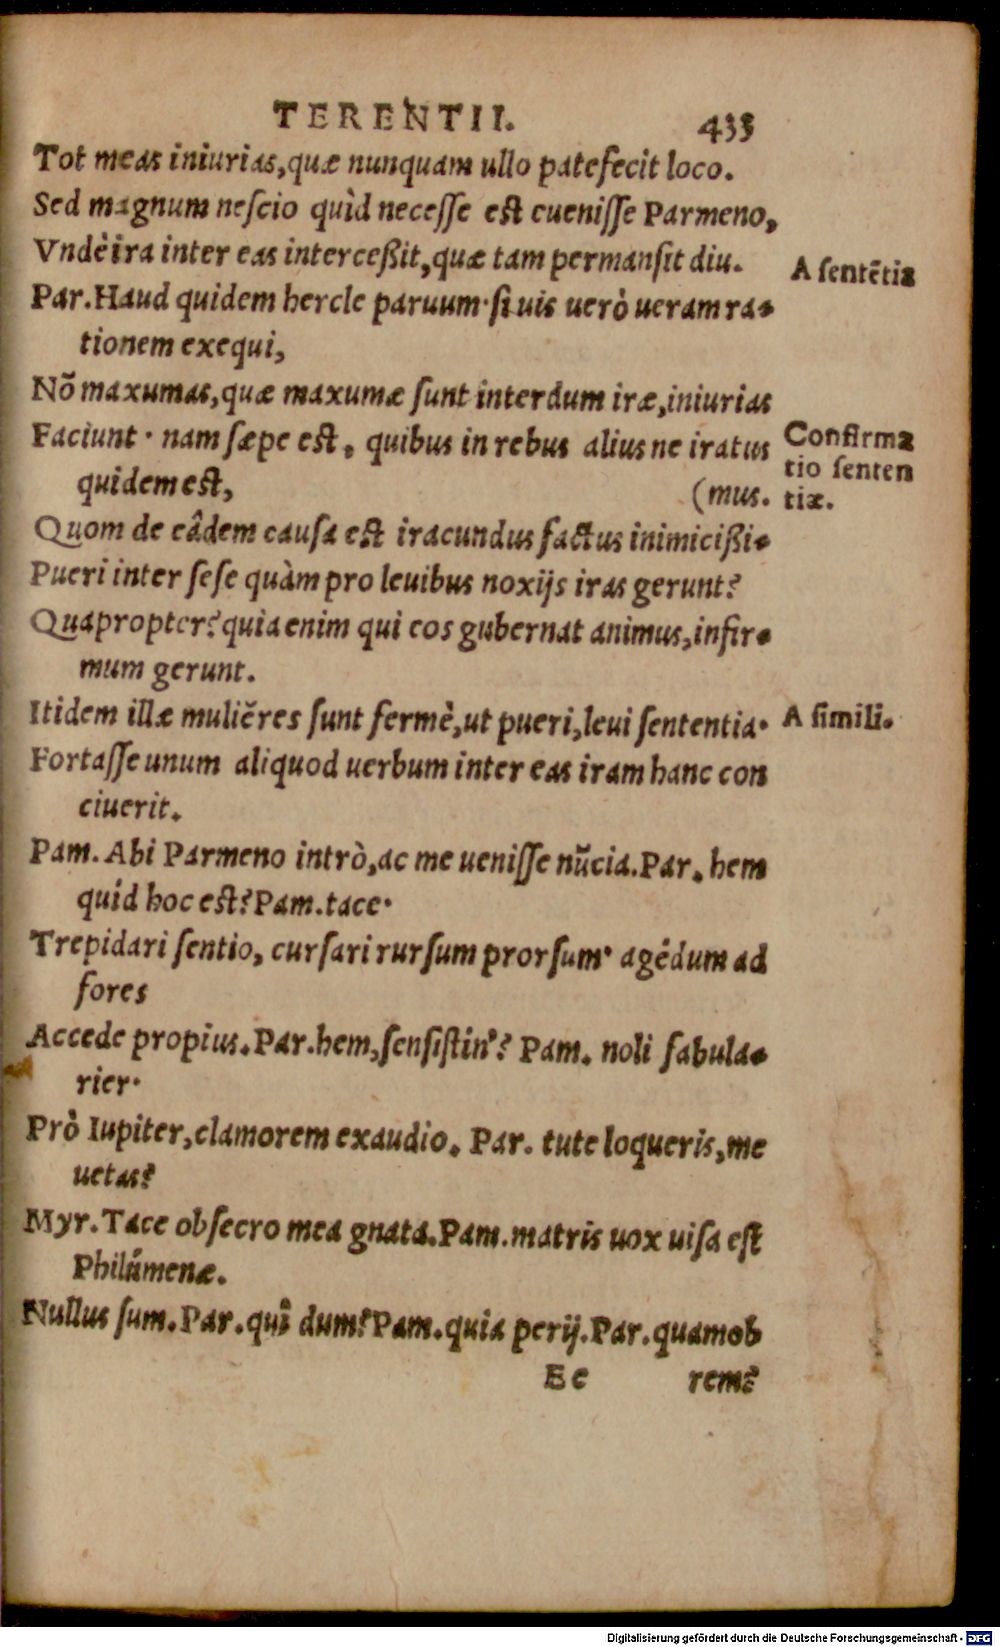 TERENTII. 433
Tot meas iniurias,quæ nunquam ullo patefecit loco.
Sed magnum nescio quìd necesse est euenisse Parmeno,
Vndè ira inter eas interceßit,quæ tam permansit diu.
A sentẽtia
Par.Haud quidem hercle paruum·si uis uerò ueram ra-
tionem exequi,
Nõ maxumas,quæ maxumæ sunt interdum iræ,iniurias
Faciunt· nam sæpe est, quibus in rebus alius ne iratus
quidem est, (mus.
Confirma
tio senten
tiæ.
Quom de eâdem causa est iracundus factus inimicißi-
Pueri inter sese quàm pro leuibus noxijs iras gerunt?
Quapropter?quia enim qui eos gubernat animus,infir-
mum gerunt.
Itidem illæ muliẽres sunt fermè,ut pueri,leui sententia·
A simili.
Fortasse unum aliquod uerbum inter eas iram hanc con
ciuerit.
Pam. Abi Parmeno intrò,ac me uenisse nũcia.Par. hem
quid hoc est?Pam.tace·
Trepidari sentio, cursari rursum prorsum· agédum ad
fores
Accede propius.Par.hem,sensistin'? Pam. noli fabula-
rier·
Prò Iupiter,clamorem exaudio. Par. tute loqueris,me
uetas?
Myr.Tace obsecro mea gnata.Pam.matris uox uisa est
Philúmenæ.
Nullus sum.Par.quî dum?Pam.quia perij.Par.quamob
Ee rem?
Digitalisierung gefördert durch die Deutsche Forschungsgemeinschaft - DFG